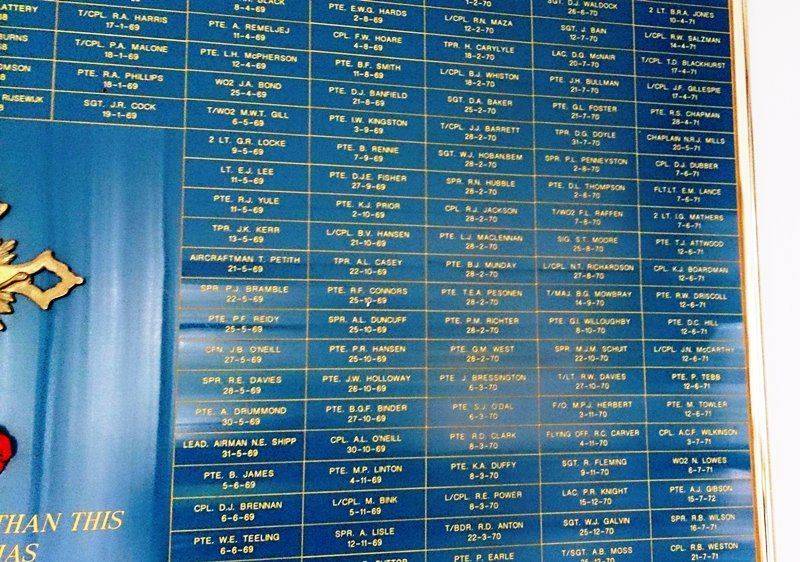 LATTERY
BURNS
OMSON
RIJSEWIJK
T/CPL. R.A. HARRIS
17-1-69
T/CPL. P.A. MALONE
18-1-69
PTE. R.A. PHILLIPS
18-1-69
SGT. J.R. COCK
19-1-69
8-4-69
PTE. A. REMELJEJ
11-4-69
PTE. L.H. McPHERSON
12-4-69
WO2 J.A. BOND
25-4-69
T/WO2 M.W.T. GILL
6-5-69
2 LT. G.R. LOCKE
9-5-69
LT. E.J. LEE
11-5-69
PTE. R.J. YULE
11-5-69
TPR. J.K. KERR
13-5-69
AIRCRAFTMAN T. PETITH
21-5-69
SPR. P.J. BRAMBLE
22-5-69
PTE. P.F. REIDY
25-5-69
CFN. J.B. O'NEILL
27-5-69
SPR. R.E. DAVIES
28-5-69
PTE. A. DRUMMOND
30-5-69
LEAD. AIRMAN N.E. SHIPP
31-5-69
PTE. B. JAMES
5-6-69
CPL. D.J. BRENNAN
6-6-69
PTE. W.E. TEELING
6-6-69
PTE. E.W.G. HARDS
2-8-69
CPL. F.W. HOARE
4-8-69
PTE. B.F. SMITH
11-8-69
PTE. D.J. BANFIELD
21-8-69
PTE. I.W. KINGSTON
3-9-69
PTE. B. RENNIE
7-9-69
PTE. D.J.E. FISHER
27-9-69
PTE. K.J. PRIOR
2-10-69
L/CPL. B.V. HANSEN
21-10-69
TPR. A.L. CASEY
22-10-69
PTE. R.F. CONNORS
25-10-69
SPR. A.L. DUNCUFF
25-10-69
PTE. P.R. HANSEN
25-10-69
PTE. J.W. HOLLOWAY
26-10-69
PTE. B.G.F. BINDER
27-10-69
CPL. A.L. O'NEILL
30-10-69
PTE. M.P. LINTON
4-11-69
L/CPL. M. BINK
5-11-69
SPR. A. LISLE
12-11-69
1-2-70
L/CPL. R.N. MAZA
12-2-70
TPR. H. CARYLYLE
18-2-70
L/CPL. B.J. WHISTON
18-2-70
SGT. D.A. BAKER
25-2-70
T/CPL. J.J. BARRETT
28-2-70
SGT. W.J. HOBAN BEM
28-2-70
SPR. R.N. HUBBLE
28-2-70
CPL. R.J. JACKSON
28-2-70
PTE. L.J. MACLENNAN
28-2-70
PTE. B.J. MUNDAY
28-2-70
PTE. T.E.A. PESONEN
28-2-70
PTE. P.M. RICHTER
28-2-70
PTE. G.M. WEST
28-2-70
PTE. J. BRESSINGTON
6-3-70
PTE. S.J. O'DAL
6-3-70
PTE. R.D. CLARK
8-3-70
PTE. K.A. DUFFY
8-3-70
L/CPL. R.E. POWER
8-3-70
T/BDR. R.D. ANTON
22-3-70
PTE. P. EARLE
SGT. D.J. WALDOCK
26-6-70
SGT. J. BAIN
12-7-70
LAC. D.G. McNAIR
20-7-70
PTE. J.H. BULLMAN
21-7-70
PTE. G.L. FOSTER
21-7-70
TPR. D.G. DOYLE
31-7-70
SPR. P.L. PENNEYSTON
2-8-70
PTE. D.L. THOMPSON
2-8-70
T/WO2 F.L. RAFFEN
7-8-70
SIG. S.T. MOORE
25-8-70
L/CPL. N.T. RICHARDSON
27-8-70
T/MAJ. B.G. MOWBRAY
14-9-70
PTE. G.I. WILLOUGHBY
8-10-70
SPR. M.J.M. SCHUIT
22-10-70
T/LT. R.W. DAVIES
27-10-70
F/O. M.P.J. HERBERT
3-11-70
FLYING OFF. R.C. CARVER
4-11-70
SGT. R. FLEMING
9-11-70
LAC. P.R. KNIGHT
15-12-70
SGT. W.J. GALVIN
25-12-70
T/SGT. A.B. MOSS
2 LT. B.R.A. JONES
10-4-71
L/CPL. R.W. SALZMAN
14-4-71
T/CPL. T.D. BLACKHURST
17-4-71
L/CPL. J.F. GILLESPIE
17-4-71
PTE. R.S. CHAPMAN
28-4-71
CHAPLAIN N.R.J. MILLS
20-5-71
CPL. D.J. DUBBER
7-6-71
FLT.LT. E.M. LANCE
7-6-71
2 LT. I.G. MATHERS
7-6-71
PTE. T.J. ATTWOOD
12-6-71
CPL. K.J. BOARDMAN
12-6-71
PTE. R.W. DRISCOLL
12-6-71
PTE. D.C. HILL
12-6-71
L/CPL. J.N. McCARTHY
12-6-71
PTE. P. TEBB
12-6-71
PTE. M. TOWLER
12-6-71
CPL. A.C.F. WILKINSON
3-7-71
WO2 N. LOWES
6-7-71
PTE. A.J. GIBSON
15-7-72
SPR. R.B. WILSON
16-7-71
CPL. R.B. WESTON
21-7-71
THAN THIS
HAS